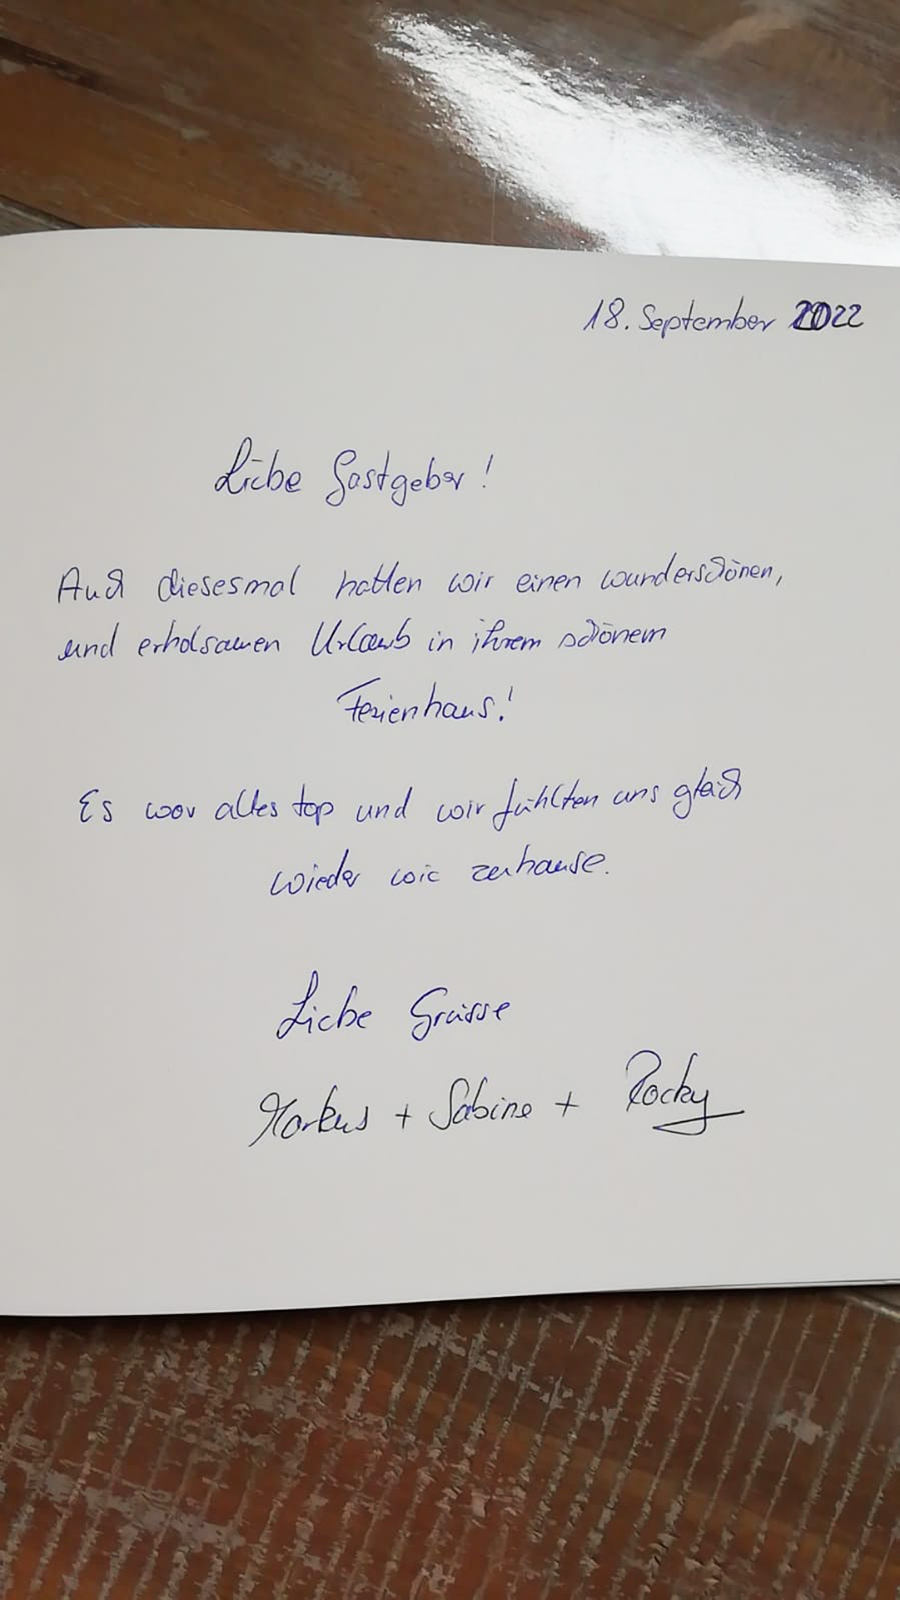 18. September 2022
Liebe Gastgeber!
Auch diesesmal hatten wir einen wunderschönen,
und erholsamen Urlaub in ihrem schönem
Ferienhaus!
Es war alles top und wir fühlten uns gleich
wieder wie zuhause.
Liebe Grüsse
Markus + Sabine + Rocky